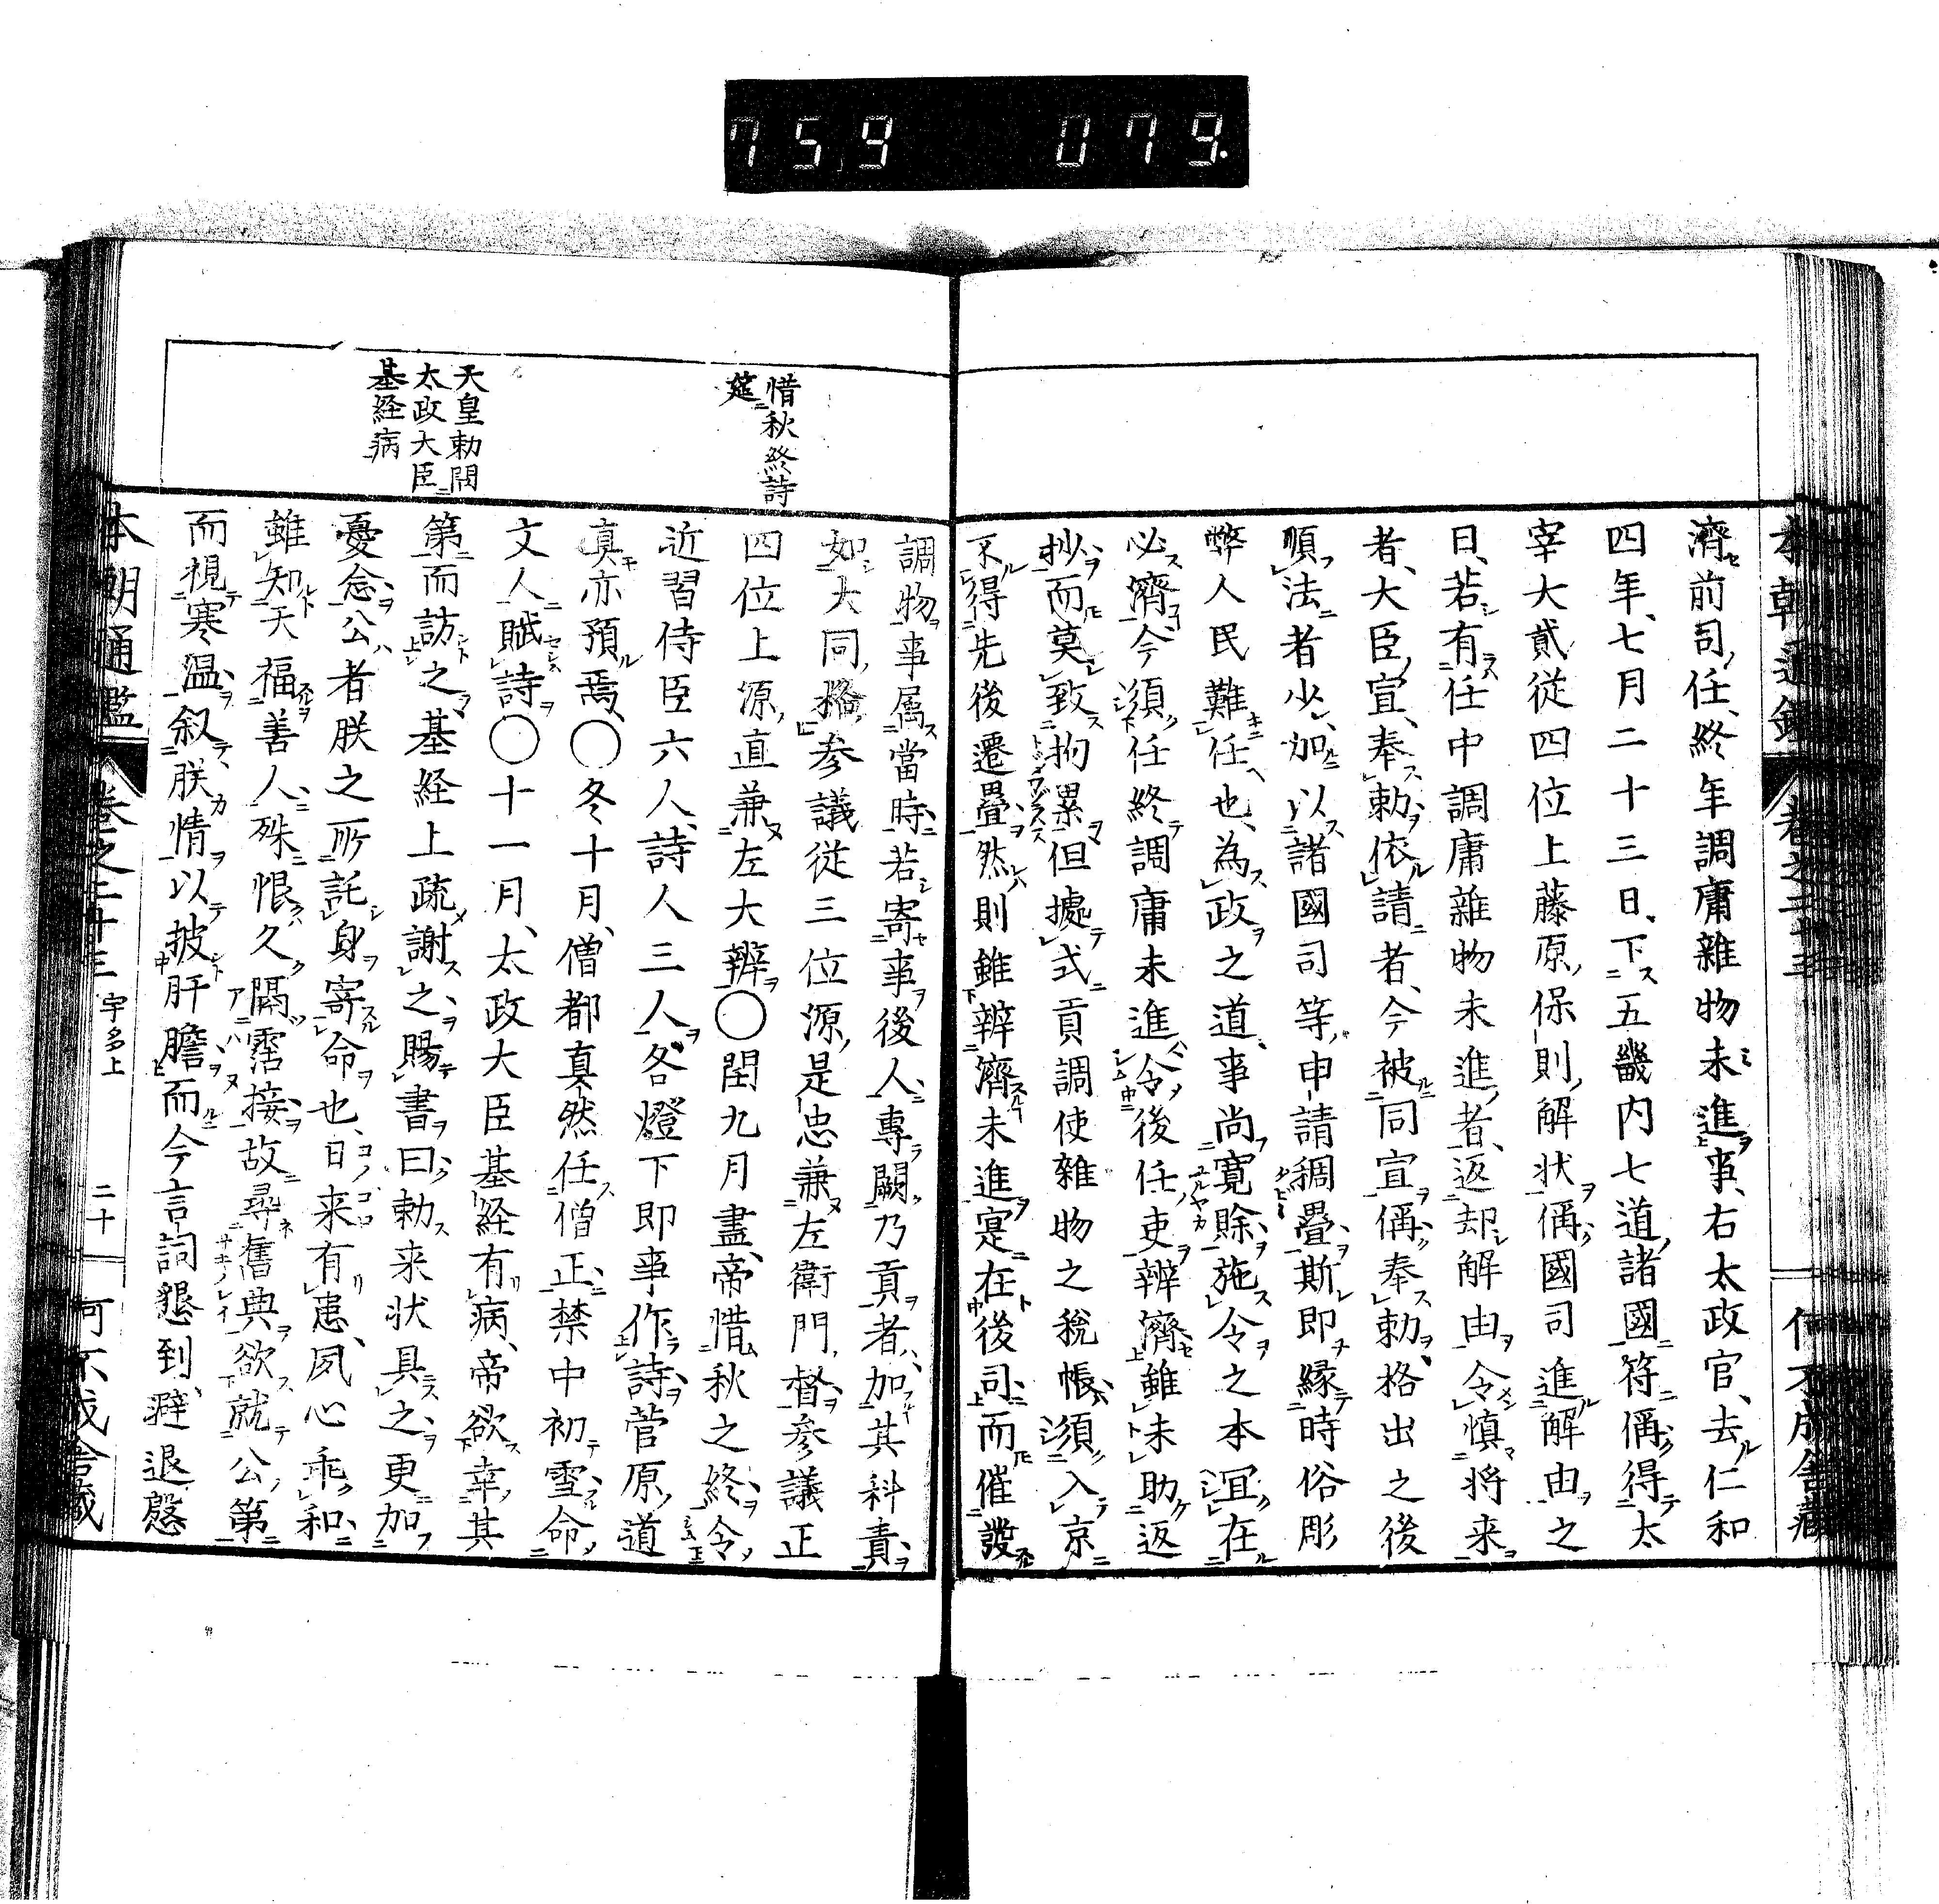 759 079.
本朝通鑑 卷之二十三 何不成舎蔵
濟前司任終年調庸雜物未進事、右太政官、去仁和
四年、七月二十三日、下五畿内七道諸國符偁、得太
宰大貳従四位上藤原保則解状偁、國司進解由之
日、若有任中調庸雜物未進者、返却解由、令慎将来
者、大臣宣、奉勅、依請者、今被同宣偁、奉勅、格出之後
順法者少、加以諸國司等、申請稠疊、斯即縁時俗彫
弊、人民難任也、為政之道、事尚寛賖、施令之本、冝在
必濟、今須任終調庸未進、令後任吏辨濟、雖未助返
抄、而莫致拘累、但據式貢調使雜物之稅帳、須入京
不得先後遷疊、然則雖辨濟未進、寔在後司、而催發
調物、事属當時、若寄事後人、專闕乃貢者、加其科責
如大同格、参議従三位源是忠兼左衛門督、参議正
四位上源直兼左大辨〇閏九月盡、帝惜秋之終、令
近習侍臣六人、詩人三人、各燈下即事作詩、菅原道
真亦預焉、〇冬十月、僧都真然任僧正、禁中初雪、命
文人賦詩〇十一月、太政大臣基経有病、帝欲幸其
第而訪之、基経上疏謝之、賜書曰、勅来状具之、更加
憂念、公者朕之所託身寄命也、日来有患、夙心乖和、
雖知天福善人、殊恨久隔霑接、故尋舊典、欲就公第
而視寒温、叙朕情以披肝膽、而今言詞懇到、避退慇
惜秋終詩
筵
天皇勅問
太政大臣
基経病
本朝通鑑 卷之二十三 宇多上 二十 何不成舎蔵